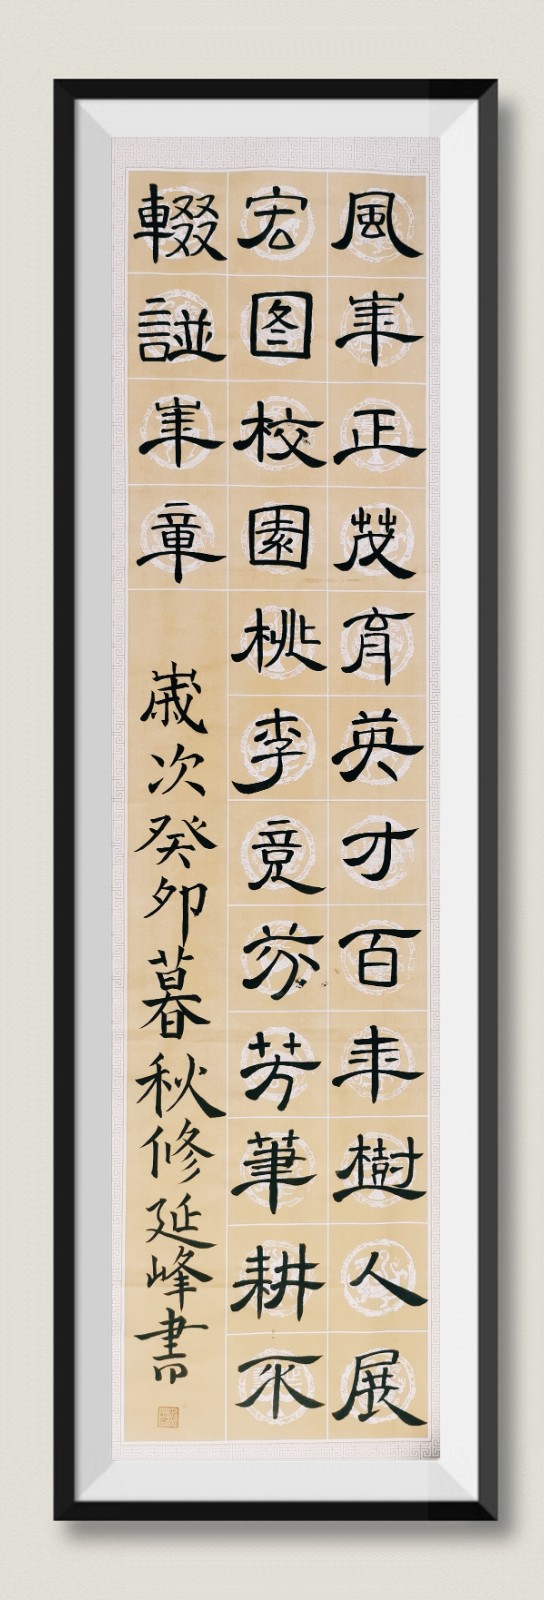 風華正茂育英才百年樹人展
宏图校園桃李竞芬芳筆耕不
輟譜華章
歲次癸卯暮秋修延峰書